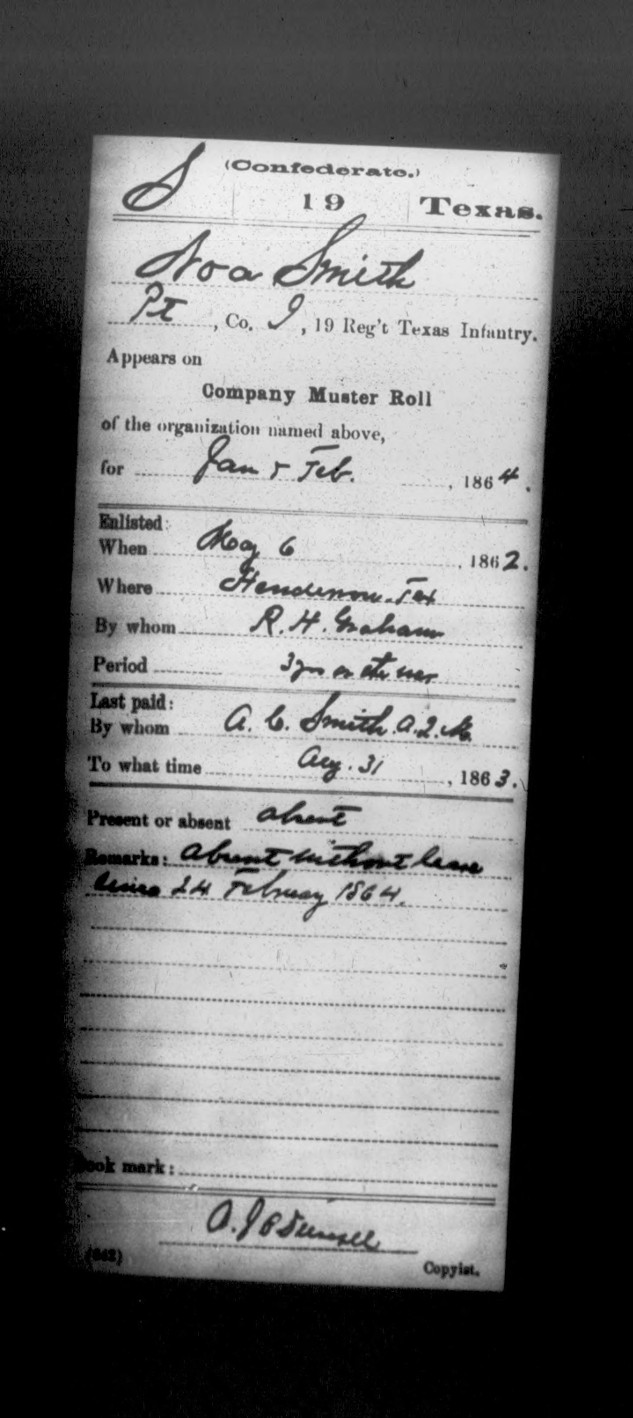 (Confederate.)
S 19 Texas.
Noa Smith
Pt, Co. I, 19 Reg't Texas Infantry.
Appears on
Company Muster Roll
of the organization named above,
for Jan & Feb., 1864.
Enlisted:
When May 6, 1862.
Where Henderson. Tex
By whom R. H. Graham
Period 3 yrs or the war
Last paid:
By whom A. C. Smith. A.Q.M.
To what time Aug. 31, 1863.
Present or absent absent
Remarks: absent without leave
since 24 February 1864.
Book mark:
A. J.
Copyist.